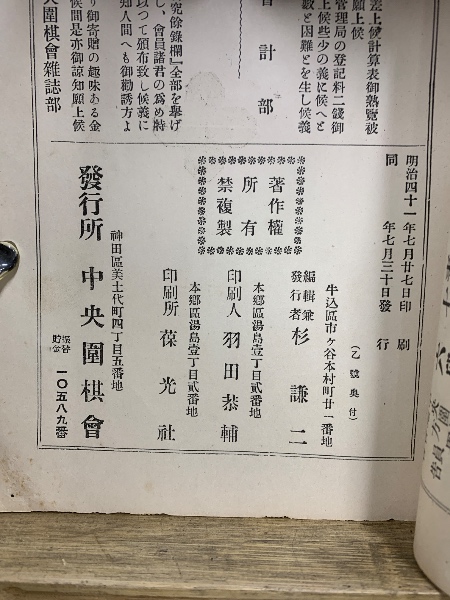 差上候計算表御熟覽被
願上候
管理局の登記料二錢御
上候些少の義に候へと
數と困難とを生し候義
會計部
究餘錄欄』全部を擧げ
し、會員諸君の爲め特
以つて頒布致し候義に
知人間へも御勸誘方よ
り御寄贈の趣味ある金
候間是亦御諒知願上候
央圍棋會雜誌部
明治四十一年七月廿七日印刷
同年七月三十日發行
(乙號奥付)
著作權
所有
禁複製
牛込區市ヶ谷本村町廿一番地
編輯兼
發行者 杉謙二
本鄉區湯島壹丁目貳番地
印刷人 羽田恭輔
本鄉區湯島壹丁目貳番地
印刷所 葆光社
神田區美土代町四丁目五番地
發行所 中央圍棋會
振替
貯金 一〇五八九番